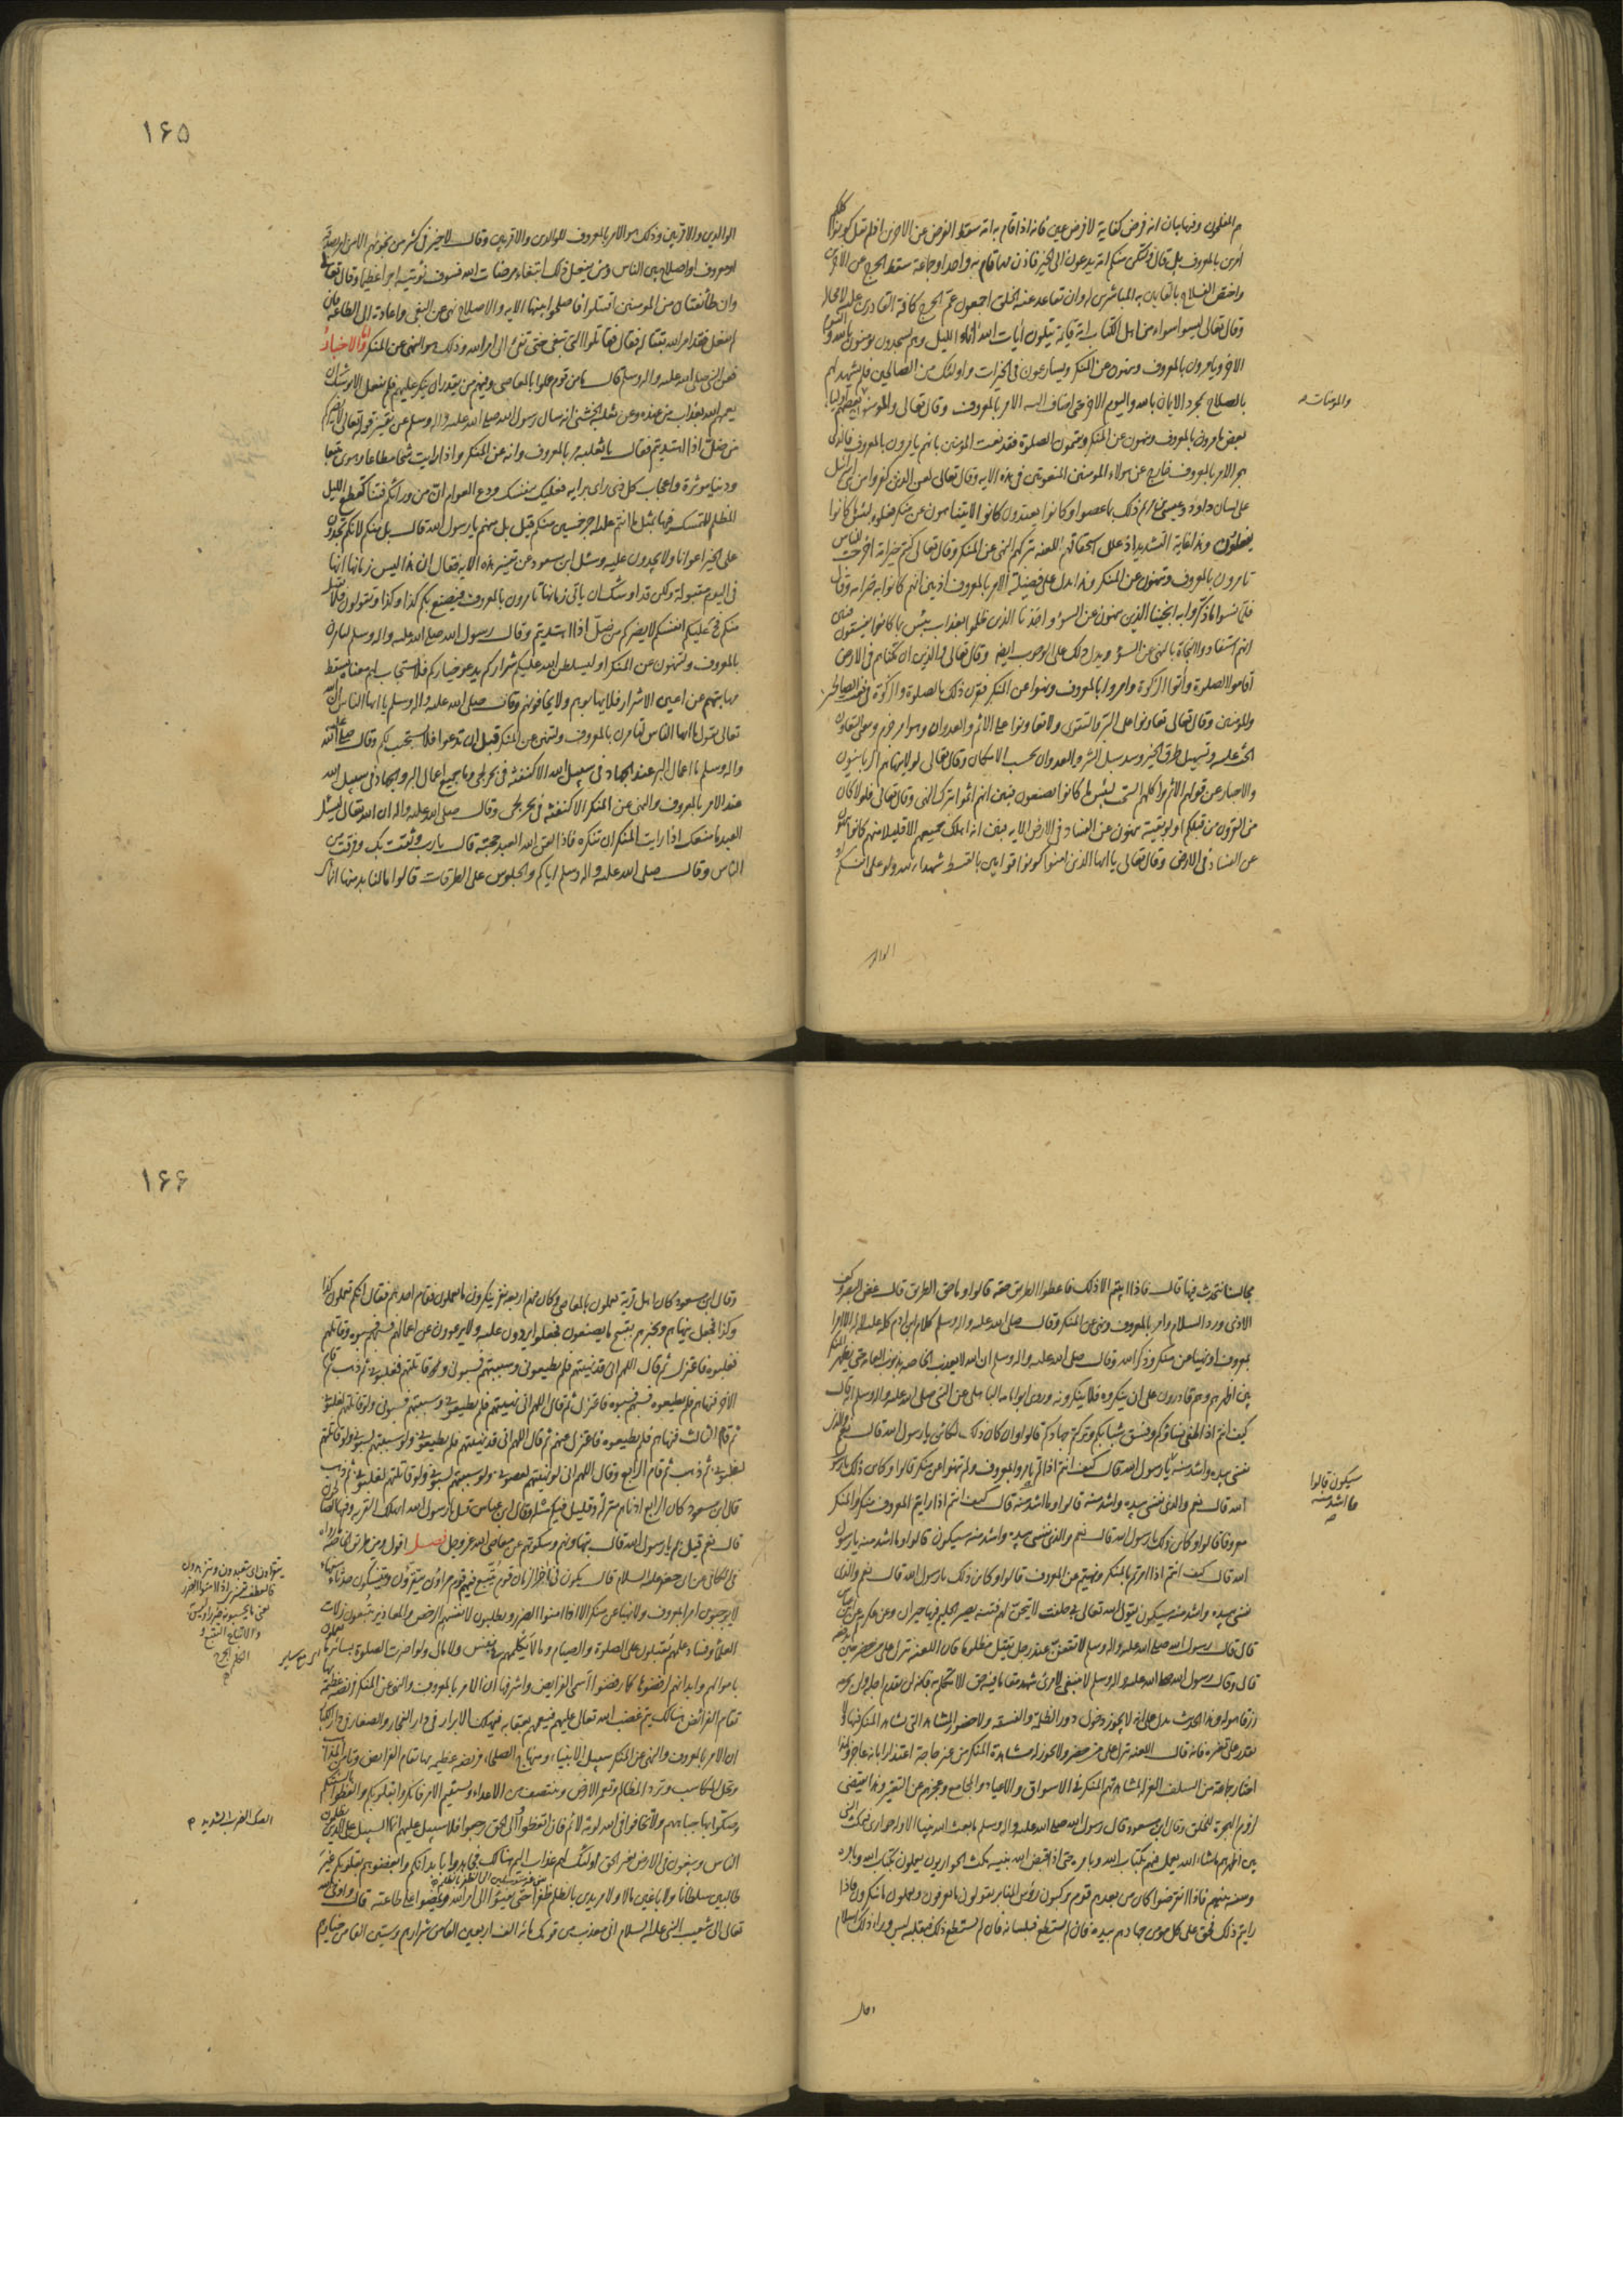 هم المفلحون وفيها بيان انه فرض كفاية لا فرض عين فانه اذا قام به امة سقط الفرض عن الاخرين اذ لم يقل كونوا كلكم
آمرين بالمعروف بل قال ولتكن منكم امة يدعون الى الخير فاذن مهما قام به واحد او جماعة سقط الحرج عن الاخرين
واختص الفلاح بالقايمين به المباشرين له وان تقاعد عنه الخلق اجمعون عم الحرج كافة القادرين عليه لا محالة
وقال تعالى ليسوا سواء من اهل الكتاب امة قائمة يتلون ايات الله اناء الليل وهم يسجدون يؤمنون بالله واليوم
الاخر ويامرون بالمعروف وينهون عن المنكر ويسارعون في الخيرات واولئك من الصالحين فلم يشهد لهم
بالصلاح بمجرد الايمان بالله واليوم الاخر حتى اضاف اليه الامر بالمعروف وقال تعالى والمؤمنون بعضهم اولياء
والمومنات
بعض يامرون بالمعروف وينهون عن المنكر ويقيمون الصلوة فقد نعت المؤمنين بانهم يامرون بالمعروف فالذي
هجر الامر بالمعروف خارج عن هولاء المومنين المنعوتين في هذه الايه وقال تعالى لعن الذين كفروا من بني اسرائيل
على لسان داود وعيسى بن مريم ذلك بما عصوا وكانوا يعتدون كانوا لا يتناهون عن منكر فعلوه لبئس ما كانوا
يفعلون وهذا غاية التشديد اذ علل استحقاقهم اللعنة بتركهم النهي عن المنكر وقال تعالى كنتم خير امة اخرجت للناس
تامرون بالمعروف وتنهون عن المنكر وهذا يدل على فضيلة الامر بالمعروف اذ بين انهم كانوا به خير امة وقال
فلما نسوا ما ذكروا به انجينا الذين ينهون عن السوء واخذنا الذين ظلموا بعذاب بئيس بما كانوا يفسقون فبين
انهم استفادوا النجاة بالنهي عن السوء ويدل ذلك على الوجوب ايضا وقال تعالى الذين ان مكناهم في الارض
اقاموا الصلوة وأتوا الزكوة وامروا بالمعروف ونهوا عن المنكر فقرن ذلك بالصلوة والزكوة في نعت الصالحين
والمومنين وقال تعالى تعاونوا على البر والتقوى ولا تعاونوا على الاثم والعدوان وهو امر جزم ومعنى التعاون
الحث عليه وتسهيل طرق الخير وسد سبل الشر والعدوان بحسب الامكان وقال تعالى لولا ينهاهم الربانيون
والاحبار عن قولهم الاثم واكلهم السحت لبئس ما كانوا يصنعون فبين انهم اثموا بترك النهي وقال تعالى فلولا كان
من القرون من قبلكم اولو بقية ينهون عن الفساد في الارض الايه فبين انه اهلك جميعهم الا قليلا منهم كانوا ينهون
عن الفساد في الارض وقال تعالى يا ايها الذين امنوا كونوا قوامين بالقسط شهداء لله ولو على انفسكم او
الوالدين
١۶۵
الوالدين والاقربين وذلك هو الامر بالمعروف للوالدين والاقربين وقال لا خير في كثير من نجويهم الا من امر بصدقة
او معروف او اصلاح بين الناس ومن يفعل ذلك ابتغاء مرضات الله فسوف نؤتيه اجرا عظيما وقال تعالى
وان طائفتان من المؤمنين اقتتلوا فاصلحوا بينهما الايه والاصلاح نهي عن البغي واعادة الى الطاعة فان
لم يفعل فقد امر الله بقتاله فقال فقاتلوا التي تبغي حتى تفيء الى امر الله وذلك هو النهي عن المنكر واما الاخبار
فعن النبي صلى الله عليه واله وسلم قال ما من قوم عملوا بالمعاصي وفيهم من يقدر ان ينكر عليهم فلم يفعل الا يوشك ان
يعمهم الله بعذاب من عنده وعن ثعلبة الخشني انه سال رسول الله صلى الله عليه واله وسلم عن تفسير قوله تعالى لا يضركم
من ضل اذا اهتديتم فقال يا ثعلبة أمر بالمعروف وانه عن المنكر واذا رايت شحا مطاعا وهوى متبعا
ودنيا موثرة واعجاب كل ذي راى برايه فعليك بنفسك ودع العوام ان من ورائكم فتنا كقطع الليل
المظلم للمتمسك فيها بمثل ما انتم عليه اجر خمسين منكم قيل بل منهم يا رسول الله قال بل منكم لانكم تجدون
على الخير اعوانا ولا يجدون عليه وسئل ابن مسعود عن تفسير هذه الايه فقال ان هذا ليس زمانها انها
في اليوم مقبولة ولكن قد اوشك ان ياتي زمانها تامرون بالمعروف فيصنع بكم كذا وكذا وتقولون فلا يقبل
منكم فح عليكم انفسكم لا يضركم من ضل اذا اهتديتم وقال رسول الله صلى الله عليه واله وسلم لتامرن
بالمعروف ولتنهون عن المنكر او ليسلطن الله عليكم شراركم ثم يدعو خياركم فلا يستجاب لهم معناه يسقط
مهابتهم عن اعين الاشرار فلا يهابونهم ولا يخافونهم وقال صلى الله عليه واله وسلم يا ايها الناس ان الله
تعالى يقول يا ايها الناس لتامرن بالمعروف ولتنهن عن المنكر قبل ان تدعوا فلا يستجب لكم وقال صلى الله عليه
واله وسلم ما اعمال البر عند الجهاد في سبيل الله الا كنفثة في بحر لجي وما جميع اعمال البر والجهاد في سبيل الله
عند الامر بالمعروف والنهي عن المنكر الا كنفثة في بحر لجي وقال صلى الله عليه واله ان الله تعالى ليسئل
العبد ما منعك اذا رايت المنكر ان تنكره فاذا لقن الله العبد حجته قال يا رب وثقت بك وفرقت من
الناس وقال صلى الله عليه واله وسلم اياكم والجلوس على الطرقات قالوا ما لنا بد منها انما هي
مجالسنا نتحدث فيها قال فاذا ابيتم الا ذلك فاعطوا الطريق حقه قالوا وما حق الطريق قال غض البصر وكف
الاذى ورد السلام وامر بالمعروف ونهي عن المنكر وقال صلى الله عليه واله وسلم كلام ابن ادم كله عليه لا له الا امرا
بمعروف او نهيا عن منكر وذكر الله وقال صلى الله عليه واله وسلم ان الله لا يعذب الخاصه بذنوب العامه حتى يظهر المنكر
بين اظهرهم وهم قادرون على ان ينكروه فلا ينكرونه وروى ابو امامه الباهلي عن النبي صلى الله عليه واله وسلم انه قال
كيف انتم اذا طغى نساؤكم وفسق شبابكم وتركتم جهادكم قالوا وان كان ذلك لكائن يا رسول الله قال نعم والذي
نفسي بيده واشد منه يا رسول الله قال كيف انتم اذا لم تامروا بالمعروف ولم تنهوا عن منكر قالوا وكائن ذلك يا رسول
سيكون قالوا
وما اشد منه
صح
الله قال نعم والذي نفسي بيده واشد منه قالوا وما اشد منه قال كيف انتم اذا رايتم المعروف منكرا والمنكر
معروفا قالوا وكائن ذلك يا رسول الله قال نعم والذي نفسي بيده واشد منه سيكون قالوا وما اشد منه يا رسول
الله قال كيف انتم اذا امرتم بالمنكر ونهيتم عن المعروف قالوا وكائن ذلك يا رسول الله قال نعم والذي
نفسي بيده واشد منه سيكون يقول الله تعالى بي حلفت لا تيحن لهم فتنة يصير الحليم فيها حيران وعن عكرمه عن ابن عباس
قال قال رسول الله صلى الله عليه واله وسلم لا تقفن عند رجل يقتل مظلوما فان اللعنه تنزل على من حضره حين
قال وقال رسول الله صلى الله عليه واله وسلم لا ينبغي لامرئ شهد مقاما فيه حق الا تكلم به فانه لن يقدم اجله ولن يحرمه
رزقا هو له وهذا الحديث يدل على انه لا يجوز دخول دور الظلمة والفسقة ولا حضور المشاهد التي شاهد المنكر فيها ولا
يقدر على تغييره فانه قال اللعنه تنزل على من حضر ولا يجوز له مشاهدة المنكر من غير حاجة اعتذارا بانه عاجز ولهذا
اختار جماعة من السلف العزلة لمشاهدتهم المنكر في الاسواق والاعياد والمجامع وعجزهم عن التغيير وهذا يقتضي
لزوم الهجرة للخلق وقال ابن مسعود قال رسول الله صلى الله عليه واله وسلم ما بعث الله نبيا الا وله حوارى فيمكث النبي
بين اظهرهم ما شاء الله يعمل فيهم بكتاب الله وبامره حتى اذا قبض الله نبيه مكث الحواريون يعملون بكتاب الله وبامره
وسنة نبيهم فاذا انقرضوا كان من بعدهم قوم يركبون رؤس المنابر يقولون ما يعرفون ويعملون ما ينكرون فاذا
رايتم ذلك فحق على كل مومن جهادهم بيده فان لم يستطع فبلسانه فان لم يستطع ذلك فبقلبه ليس وراء ذلك اسلام
وقال
١۶۶
وقال ابن مسعود كان اهل قرية يعملون بالمعاصي وكان فيهم اربعة نفر ينكرون ما يعملون فقام احدهم فقال انكم تعملون كذا
وكذا فجعل ينهاهم ويخبرهم بقبيح ما يصنعون فجعلوا يردون عليه ولا يرعوون عن اعمالهم فسبهم فسبوه وقاتلهم
فغلبوه فاعتزل ثم قال اللهم اني قد نهيتهم فلم يطيعوني وسببتهم فسبوني وقاتلتهم فغلبوني ثم ذهب ثم قام
الاخر فنهاهم فلم يطيعوه فسبهم فسبوه فاعتزل ثم قال اللهم اني نهيتهم فلم يطيعوني وسببتهم فسبوني ولو قاتلتهم لغلبوني
ثم قام الثالث فنهاهم فلم يطيعوه فاعتزل عنهم ثم قال اللهم اني قد نهيتهم فلم يطيعوني ولو سببتهم لسبوني ولو قاتلتهم
لغلبوني ثم ذهب ثم قام الرابع وقال اللهم اني لو نهيتهم لعصوني ولو سببتهم لسبوني ولو قاتلتهم لغلبوني ثم ذهب
قال ابن مسعود كان الرابع ادناهم منزلة وقليل فيكم مثله وقال ابن عباس قيل يا رسول الله اتهلك القرية وفيها الصالحون
قال نعم قيل بم يا رسول الله قال بتهاونهم وسكوتهم عن معاصي الله عز وجل فصل اقول ومن طريق الخاصة ما رواه
في الكافي عن ابي جعفر عليه السلام قال يكون في اخر الزمان قوم يتبع فيهم قوم مراؤن يتقرؤن ويتنسكون حدثاء سفهاء
لا يوجبون امرا بمعروف ولا نهيا عن منكر الا اذا امنوا الضرر ويطلبون لانفسهم الرخص والمعاذير يتبعون زلات
العلماء وفساد علمهم يقبلون على الصلوة والصيام وما لا يكلمهم في نفس ولا مال ولو اضرت الصلوة بسائر ما يعملون
باموالهم وابدانهم لرفضوها كما رفضوا اسمى الفرايض واشرفها ان الامر بالمعروف والنهي عن المنكر فريضة عظيمة بها
تقام الفرائض هنالك يتم غضب الله تعالى عليهم فيعمهم بعقابه فيهلك الابرار في دار الفجار والصغار في دار الكبار
ان الامر بالمعروف والنهي عن المنكر سبيل الانبياء ومنهاج الصلحاء فريضه عظيمه بها تقام الفرايض وتامن المذاهب
وتحل المكاسب وترد المظالم وتعمر الارض وينتصف من الاعداء ويستقيم الامر فانكروا بقلوبكم والفظوا بالسنتكم
وصكوا بها جباههم ولا تخافوا في الله لومة لائم فان اتعظوا والى الحق رجعوا فلا سبيل عليهم انما السبيل على الذين يظلمون
الصك الضرب الشديد
الناس ويبغون في الارض بغير الحق اولئك لهم عذاب اليم هنالك فجاهدوا بابدانكم وابغضوهم بقلوبكم غير
طالبين سلطانا ولا باغين مالا ولا مريدين بالظلم ظفرا حتى يفيئوا الى امر الله ويمضوا على طاعته قال واوحى الله
تعالى الى شعيب النبي عليه السلام اني معذب من قومك مائة الف اربعين الفا من شرارهم وستين الفا من خيارهم